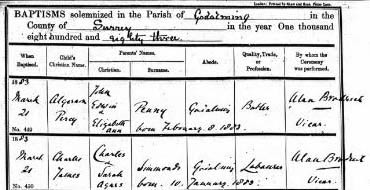 BAPTISMS solemnized in the Parish of Godalming in the
County of Surrey in the year One thousand
eight hundred and eighty three.
When Baptized. Child's Christian Name. Parents' Names. Abode. Quality, Trade, or Profession. By whom the Ceremony was performed.
Christian. Surname.
1883
March 21 Algernon Percy John Edwin & Elizabeth Ann Penny Godalming Butler Vicar.
born February 8. 1883.
No. 449
1883
March 21 Charles James Charles & Sarah Agnes Simmonds Godalming Labourer Vicar.
born 10. January 1883
No. 450